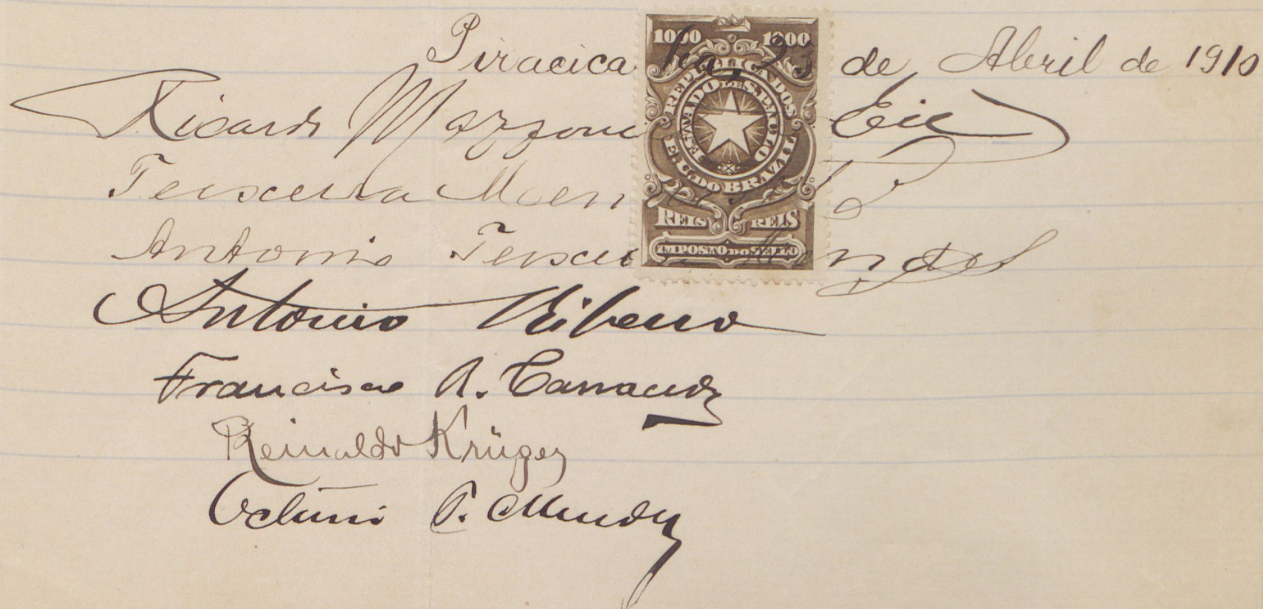 Piracicaba, 23 de Abril de 1910
1000 1000
REPUBLICA DOS
ESTADOS UNIDOS DO BRAZIL
REIS REIS
IMPOSTO DO SELLO
Ricardo Mazzoni
Teixeira Mendes
Antonio Teixeira Mendes
Antonio Ribeiro
Francisco A.
Reinaldo Krüger
P. Mendes